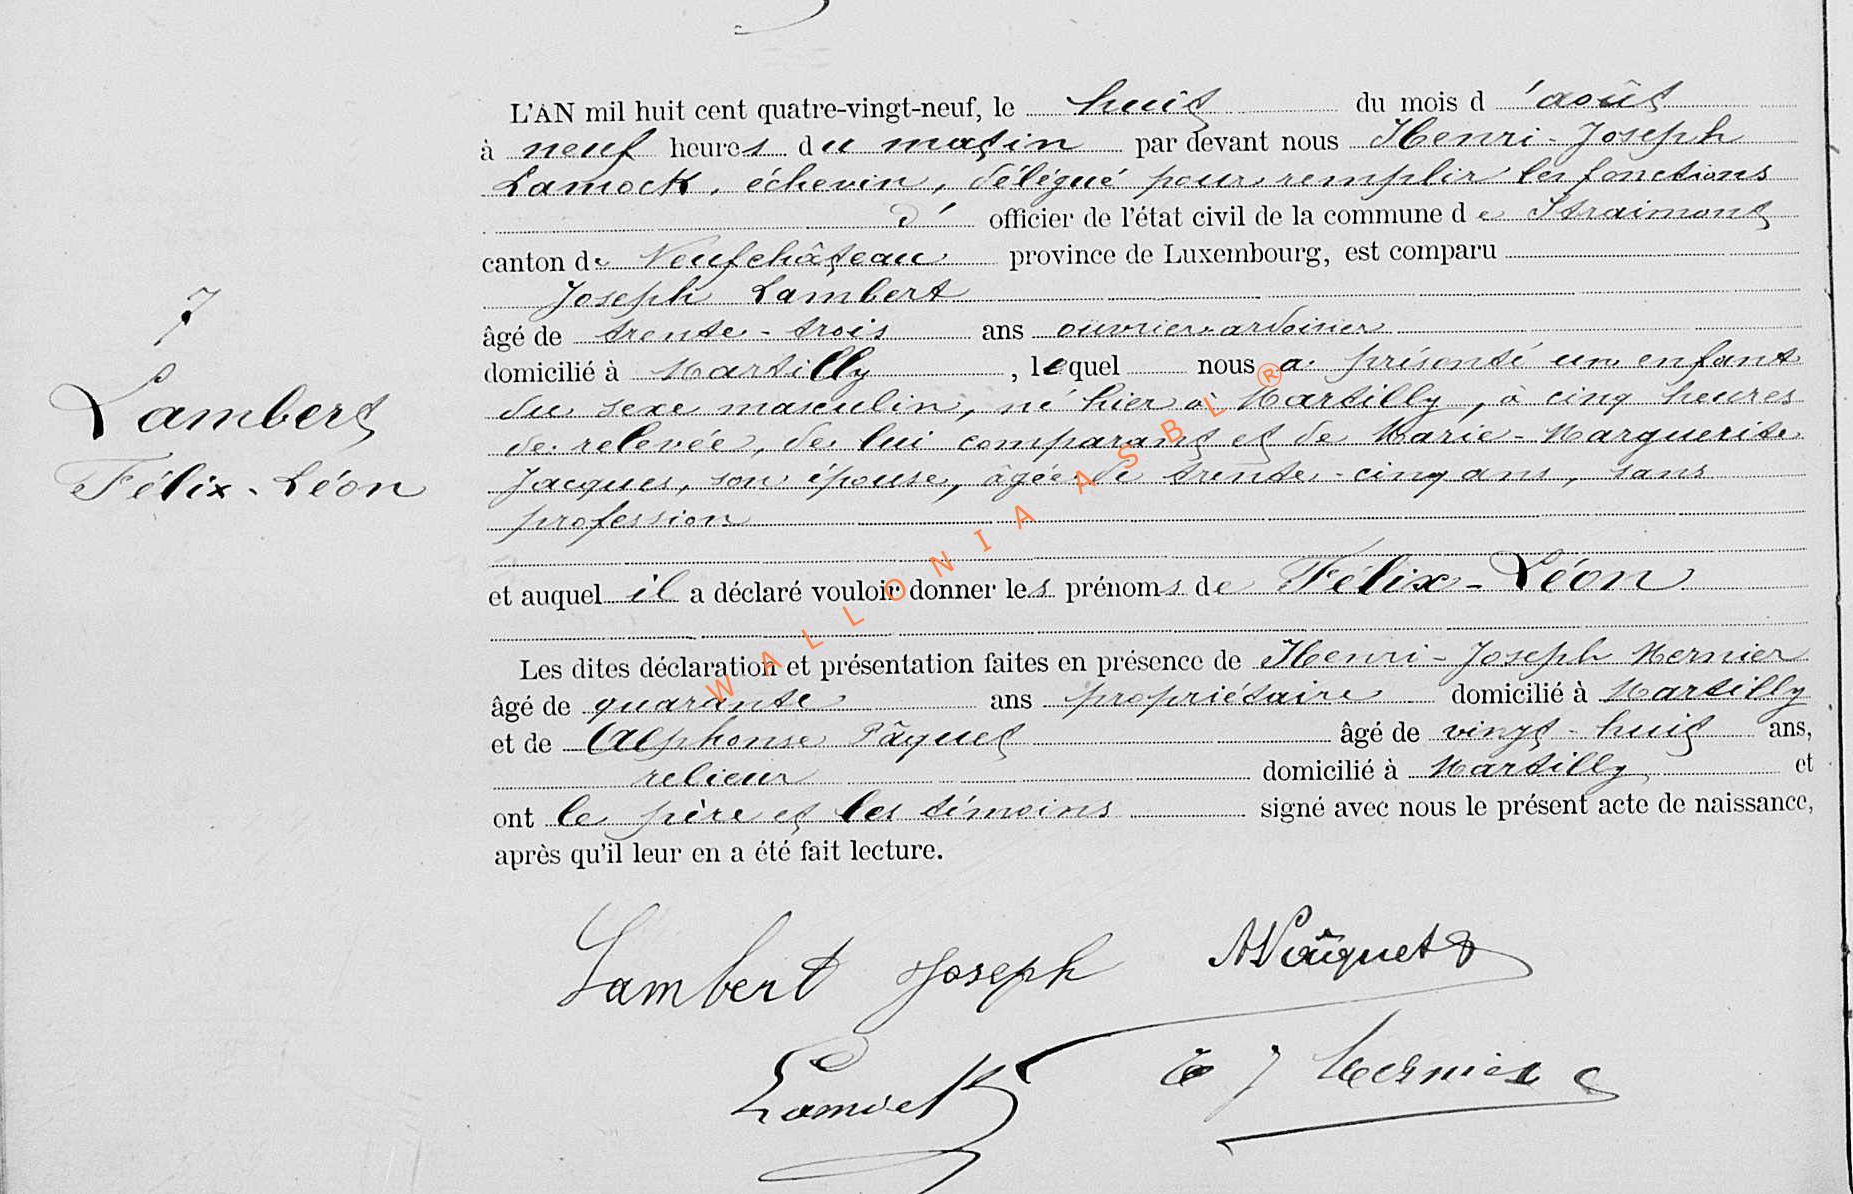 L'AN mil huit cent quatre-vingt-neuf, le huit du mois d'août
à neuf heures du matin par devant nous Henri-Joseph
Lamock, échevin, délégué pour remplir les fonctions
d' officier de l'état civil de la commune de Straimont
canton de Neufchâteau province de Luxembourg, est comparu
Joseph Lambert
âgé de trente-trois ans ouvrier ardoisier
domicilié à Martilly, lequel nous a présenté un enfant
du sexe masculin, né hier à Martilly, à cinq heures
de relevée, de lui comparant et de Marie-Marguerite
Jacques, son épouse, âgée de trente-cinq ans, sans
profession
et auquel il a déclaré vouloir donner les prénoms de Félix-Léon
Les dites déclaration et présentation faites en présence de Henri-Joseph Mernier
âgé de quarante ans propriétaire domicilié à Martilly
et de Alphonse Pâquet âgé de vingt-huit ans,
relieur domicilié à Martilly et
ont le père et les témoins signé avec nous le présent acte de naissance,
après qu'il leur en a été fait lecture.
7
Lambert
Félix-Léon
Lambert Joseph A Pâquet
Lamock H J Mernier
WALLONIA ASBL®